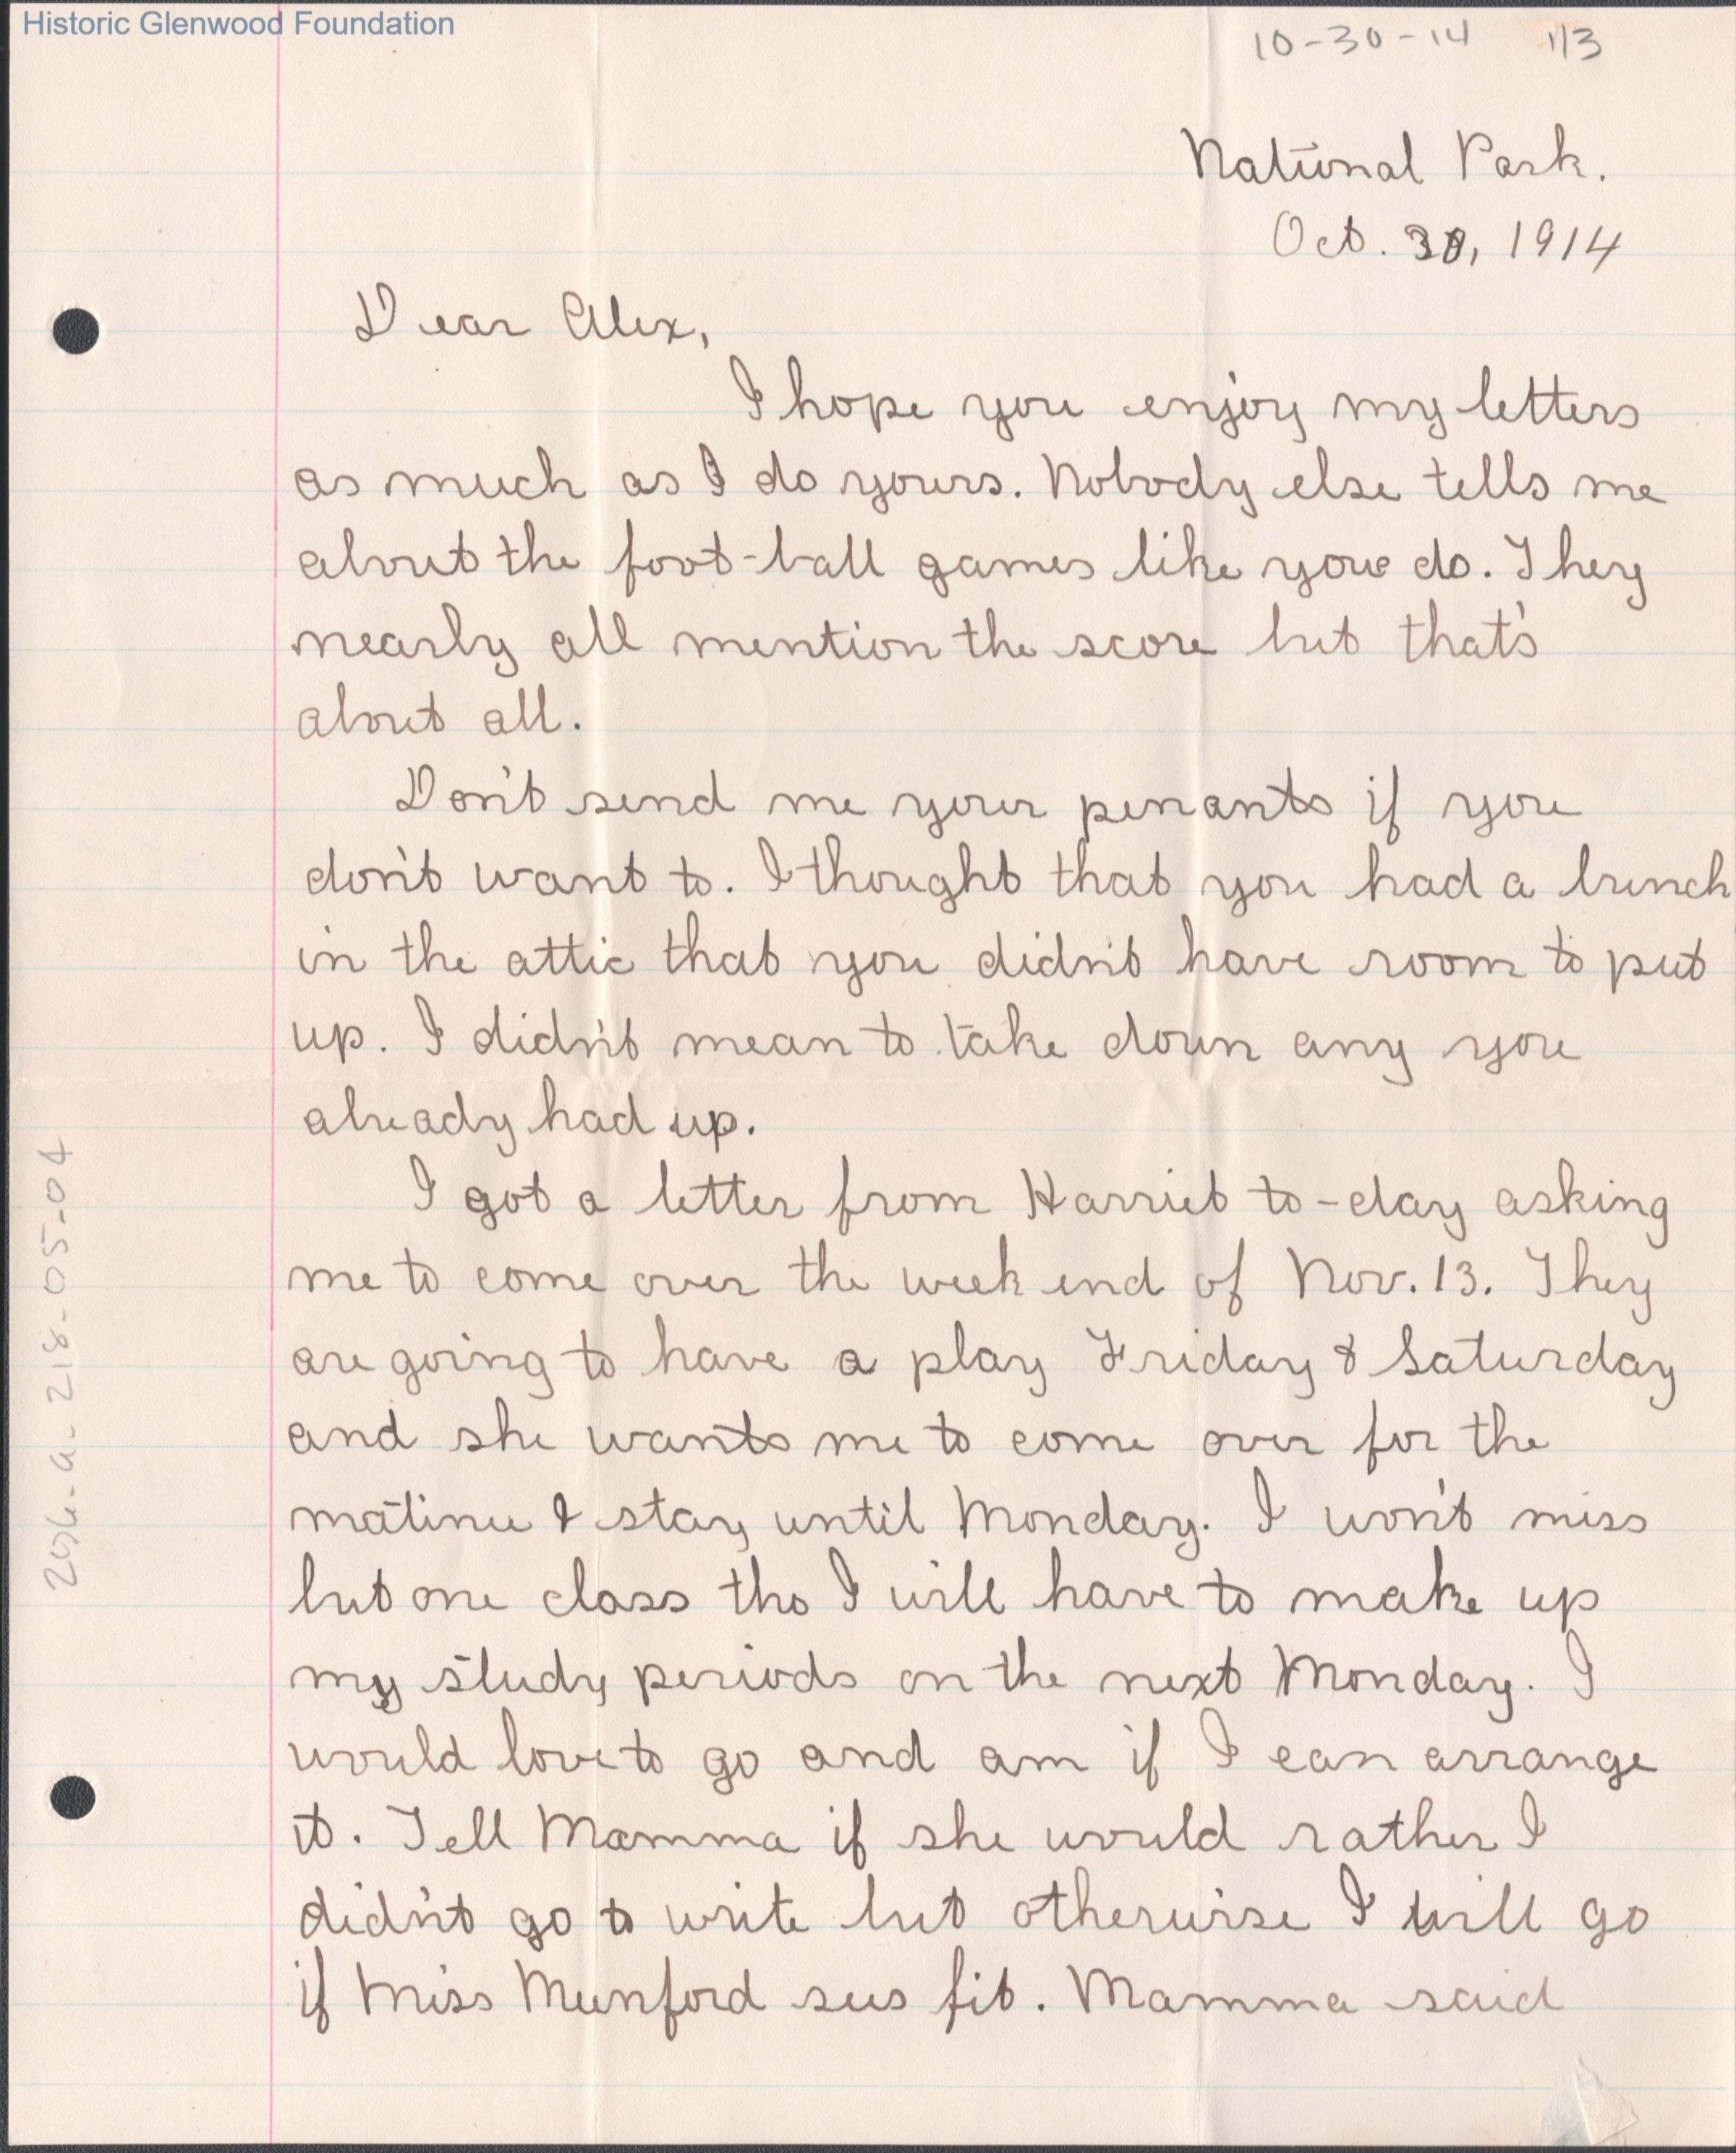 Historic Glenwood Foundation
10-30-14 1/3
National Park.
Oct. 30, 1914
Dear Alex,
I hope you enjoy my letters
as much as I do yours. Nobody else tells me
about the foot-ball games like you do. They
nearly all mention the score but that's
about all.
Don't send me your penants if you
don't want to. I thought that you had a bunch
in the attic that you didn't have room to put
up. I didn't mean to take down any you
already had up.
I got a letter from Harriet to-day asking
me to come over the week end of Nov. 13. They
are going to have a play Friday & Saturday
and she wants me to come over for the
matinee & stay until Monday. I won't miss
but one class tho I will have to make up
my study periods on the next Monday. I
would love to go and am if I can arrange
it. Tell Mamma if she would rather I
didn't go to write but otherwise I will go
if Miss Munford sees fit. Mamma said